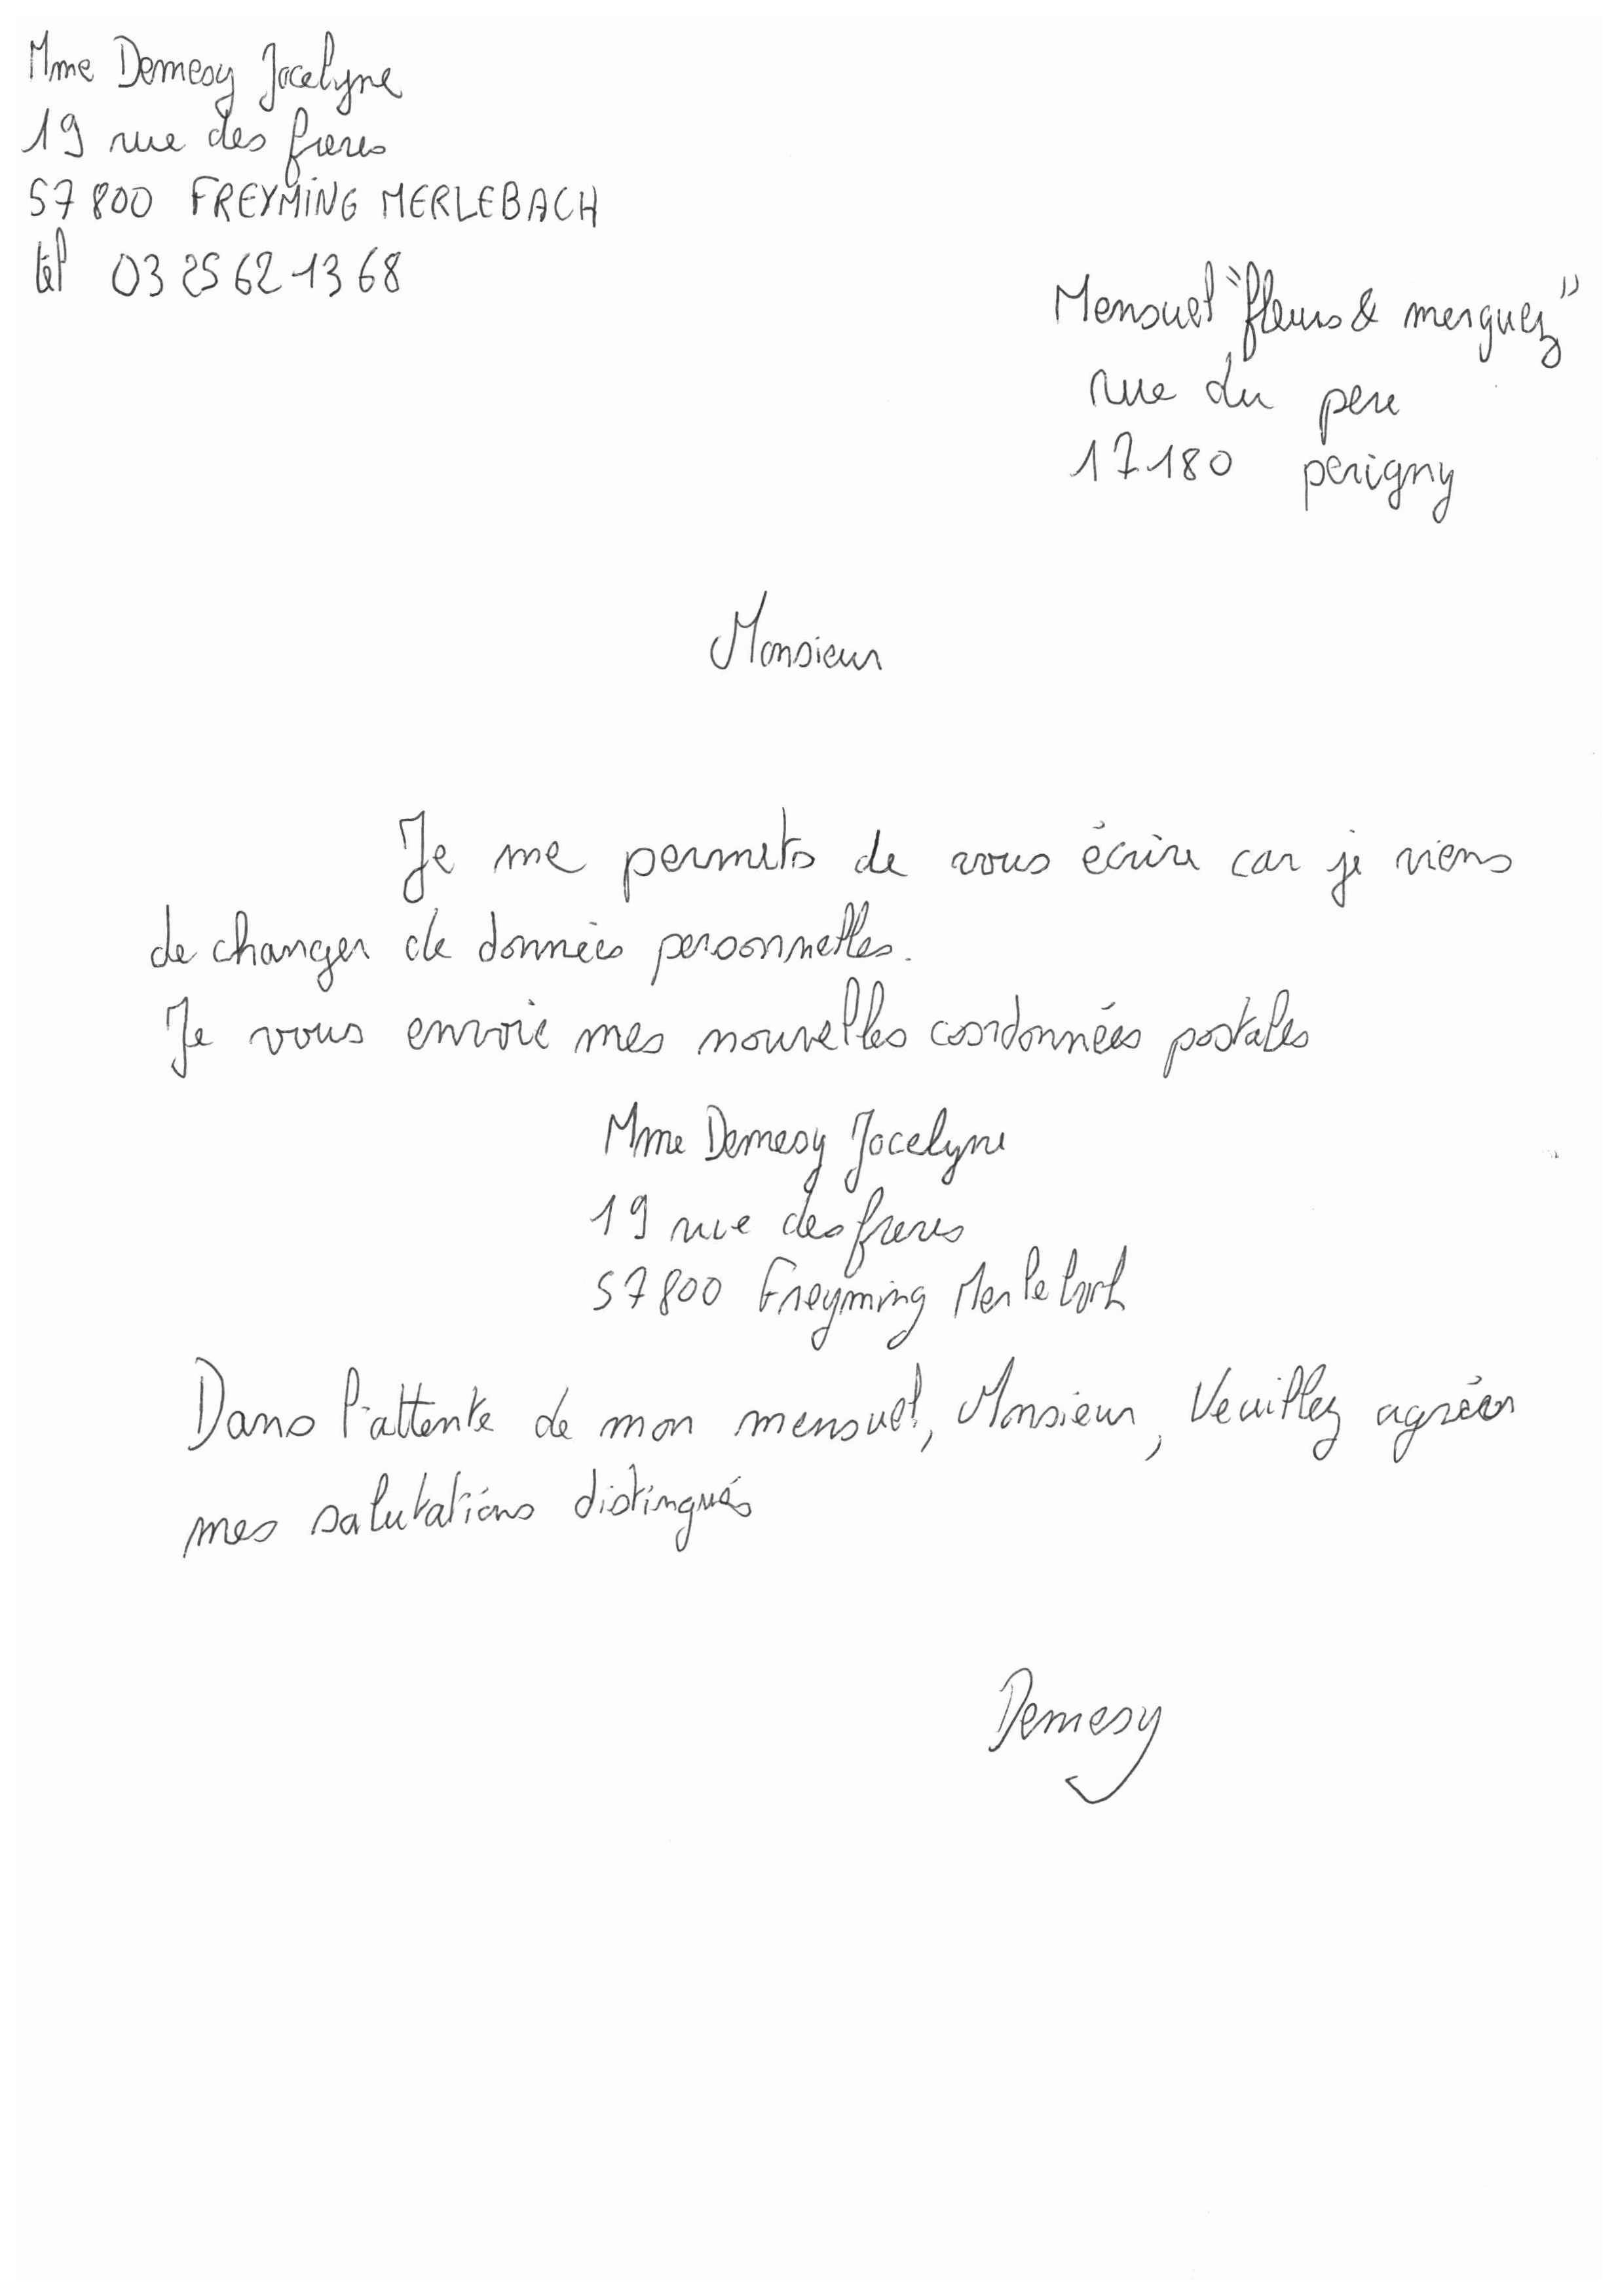 Mme Demesy Jocelyne
19 rue des freres
57800 FREYMING MERLEBACH
tél 03 25 62 13 68
Mensuel "fleurs & merguez"
rue du pere
17180 perigny
Monsieur
Je me permets de vous écrire car je viens
de changer de données personnelles.
Je vous envoie mes nouvelles coordonnées postales
Mme Demesy Jocelyne
19 rue des freres
57800 Freyming Merlebach
Dans l'attente de mon mensuel, Monsieur, Veuillez agréer
mes salutations distingués
Demesy